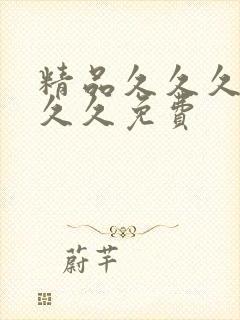 精品久久久
久久免费
蔚芊